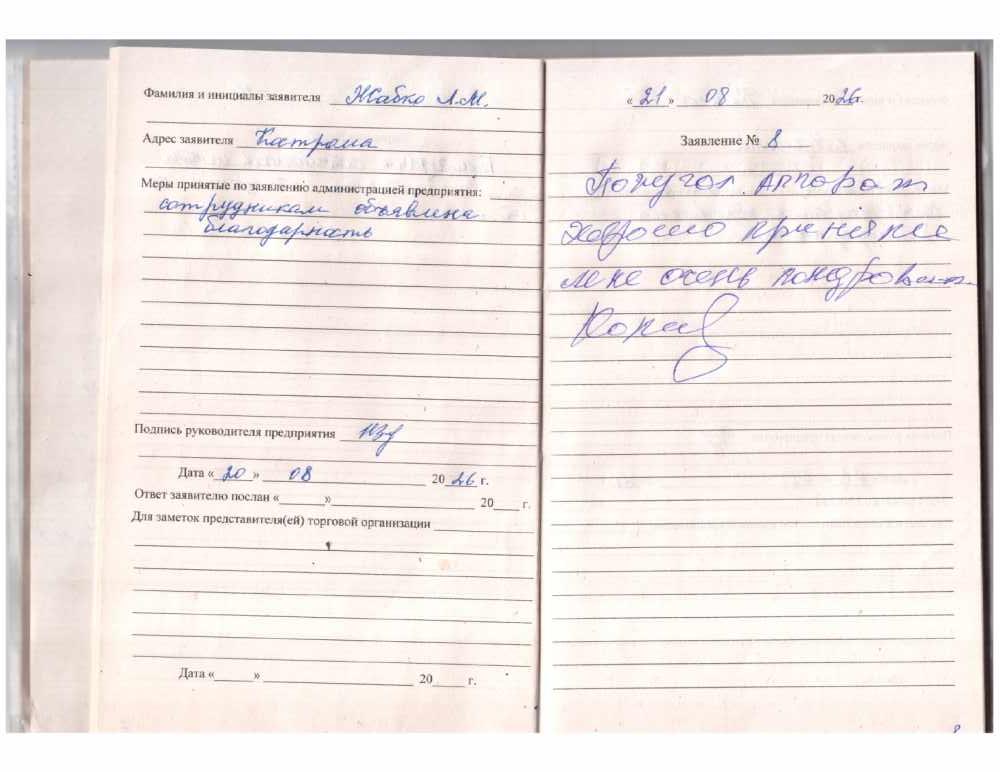 Фамилия и инициалы заявителя Жабко Л.М.
Адрес заявителя Кострома
Меры принятые по заявлению администрацией предприятия:
сотрудникам объявлена
благодарность
Подпись руководителя предприятия
Дата «20» 08 2026 г.
Ответ заявителю послан «______» 20____ г.
Для заметок представителя(ей) торговой организации
Дата «______» 20____ г.
«21» 08 2026г.
Заявление № 8
Получал Аппорат
хорошо приняли
мне очень
8